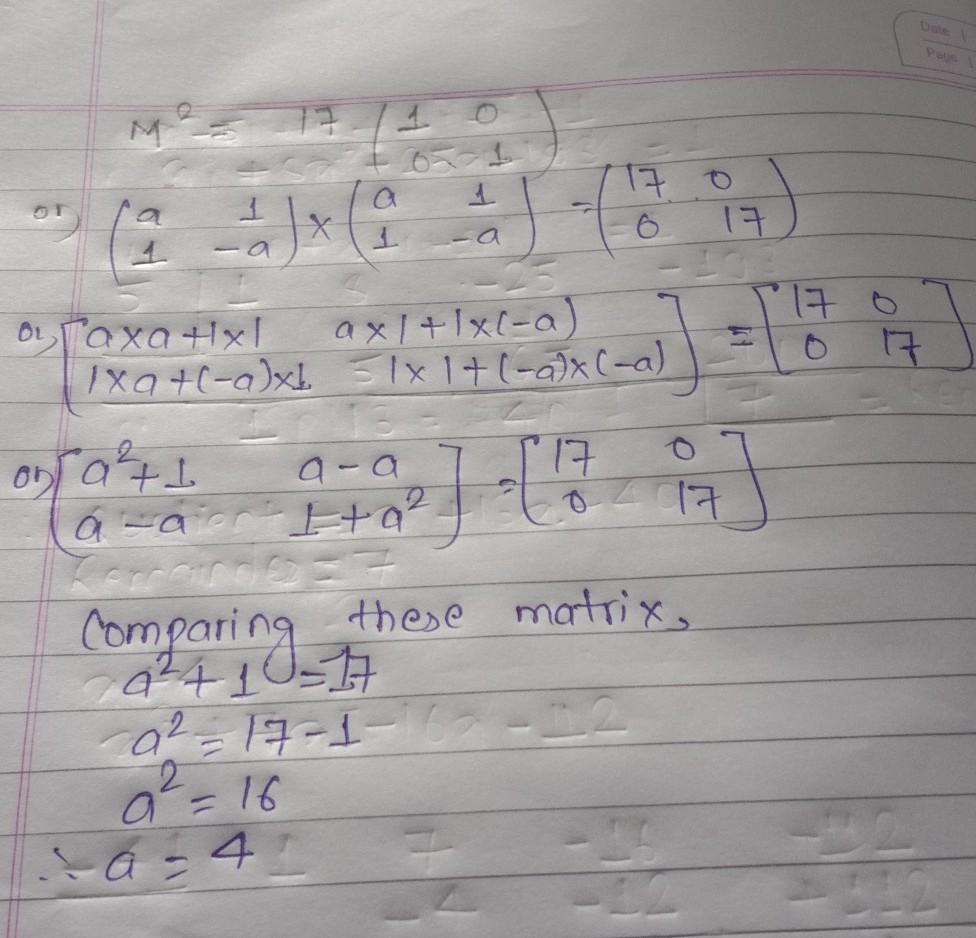 Date
Page
M² = 17 (1 0
0 1)
or, (a 1
1 -a) × (a 1
1 -a) = (17 0
0 17)
or, [a×a+1×1 a×1+1×(-a)
1×a+(-a)×1 1×1+(-a)×(-a)] = [17 0
0 17]
or, [a²+1 a-a
a-a 1+a²] = [17 0
0 17]
Comparing these matrix,
a²+1 = 17
a² = 17-1
a² = 16
∴ a = 4